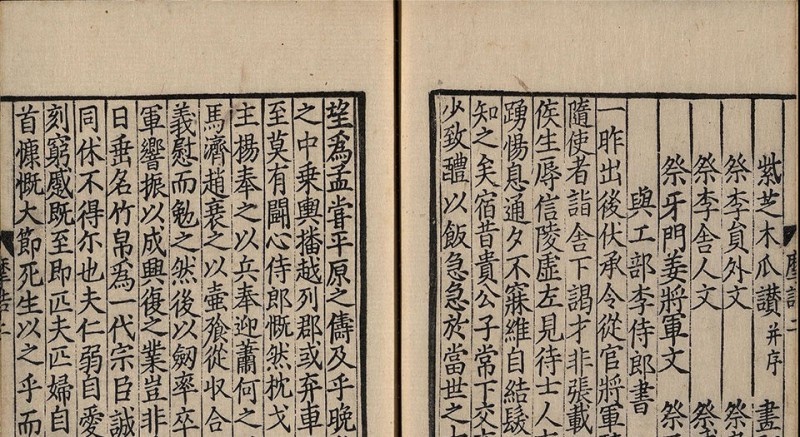 紫芝木瓜讃并序 畫
祭李貟外文 祭
祭李舎人文 祭
祭牙門姜將軍文 祭
與工部李侍郎書
一昨出後伏承令從官將軍
隨使者詣舎下謁才非張載
侯生辱信陵虚左見待士人
踴惕息通夕不寐維自結髮
知之矣宿昔貴公子常下交
少致醴以飯急急於當世之士
望爲孟甞平原之儔及乎晚
之中乗輿播越列郡或弃車
至莫有鬬心侍郎慨然枕戈
主揚奉之以兵奉迎蕭何之
馬濟趙衰之以壷飱從収合
義慰而勉之然後以劒率卒
軍響振以成興復之業豈非
日垂名竹帛爲一代宗臣誠
同休不得尓也夫仁弱自愛
刻窮慼既至即匹夫匹婦自
首慷慨大節死生以之乎而